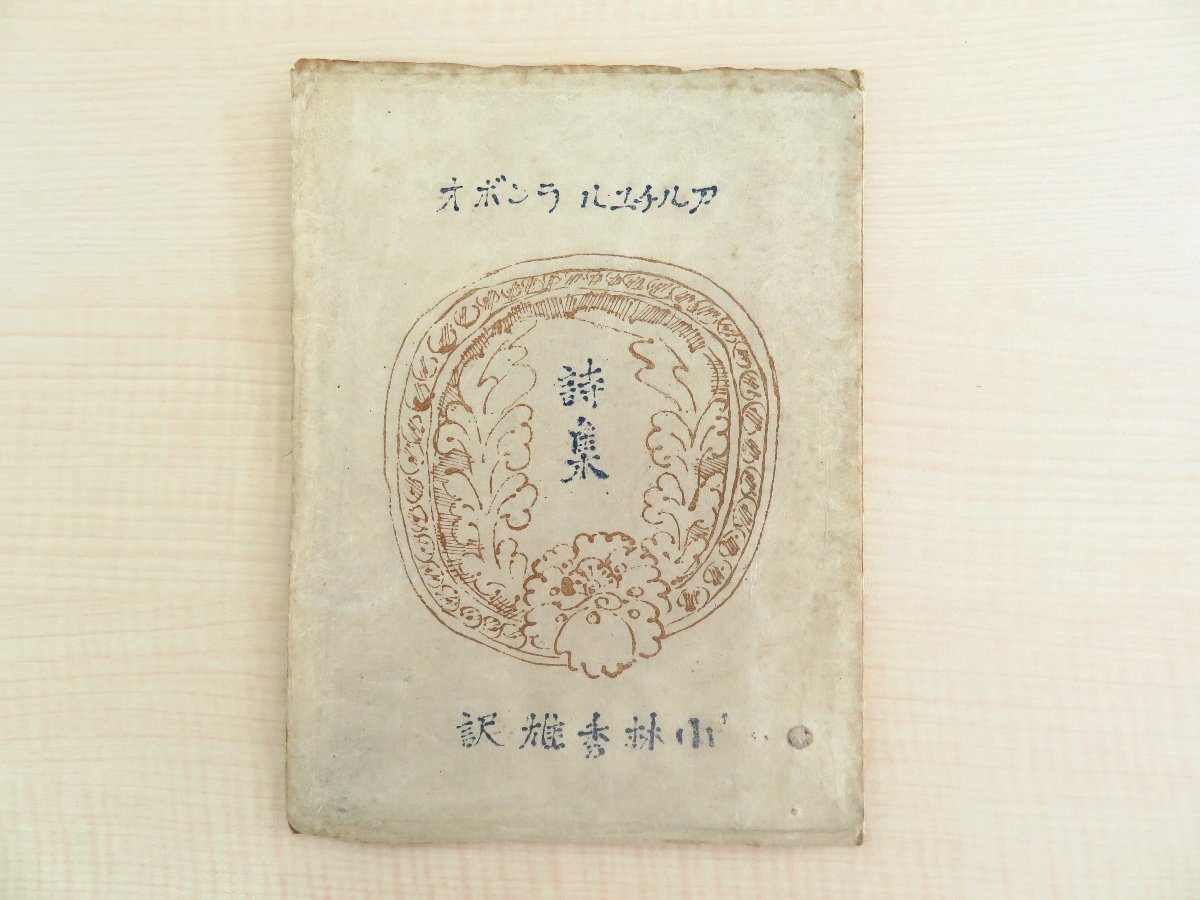 アルチュル ランボオ
詩集
小林秀雄訳